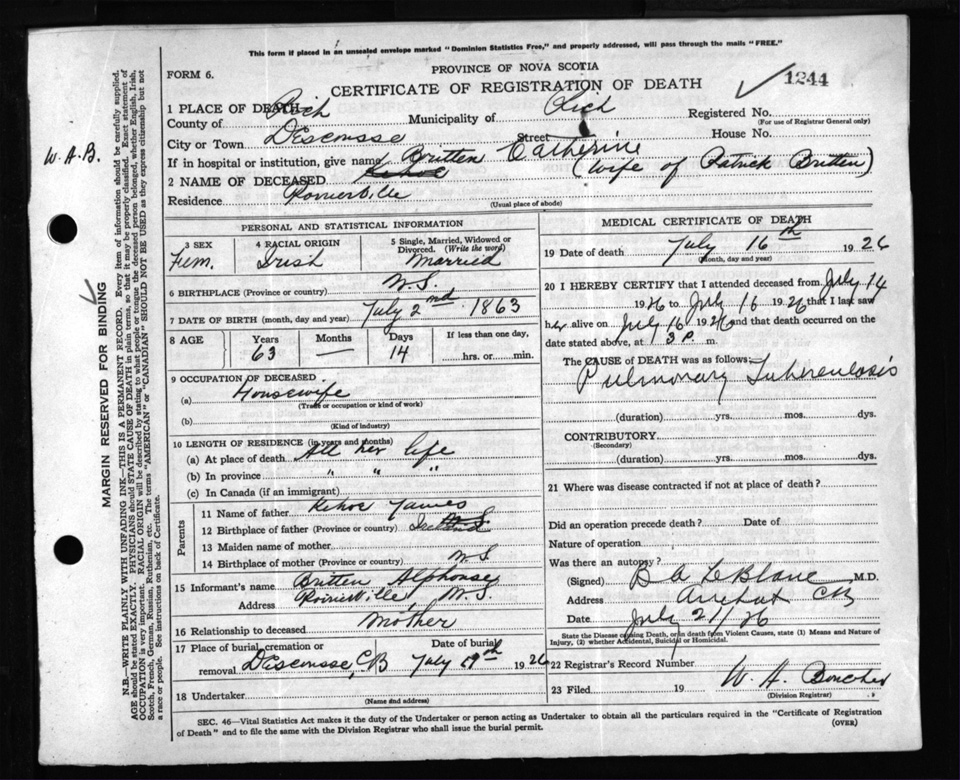 This form if placed in an unsealed envelope marked "Dominion Statistics Free," and properly addressed, will pass through the mails "FREE."
FORM 6.
PROVINCE OF NOVA SCOTIA
CERTIFICATE OF REGISTRATION OF DEATH
1244
1 PLACE OF DEATH
County of Rich Municipality of Rich Registered No.
(For use of Registrar General only)
City or Town Descousse Street House No.
If in hospital or institution, give name
2 NAME OF DECEASED Britten Catherine (wife of Patrick Britten)
Kehoe
Residence Poirierville
(Usual place of abode)
W. A. B.
MARGIN RESERVED FOR BINDING
N.B.—WRITE PLAINLY WITH UNFADING INK—THIS IS A PERMANENT RECORD. Every item of information should be carefully supplied.
AGE should be stated EXACTLY. PHYSICIANS should STATE CAUSE OF DEATH in plain terms, so that it may be properly classified. Exact statement of
OCCUPATION is very important. RACIAL ORIGIN will be described by stating to what people or tongue the deceased person belonged, whether English, Irish,
Scotch, French, German, Russian, Ruthenian, etc. The terms "AMERICAN" or "CANADIAN" SHOULD NOT BE USED as they express citizenship but not
a race or people. See instructions on back of Certificate.
PERSONAL AND STATISTICAL INFORMATION
3 SEX
Fem.
4 RACIAL ORIGIN
Irish
5 Single, Married, Widowed or
Divorced. (Write the word)
Married
6 BIRTHPLACE (Province or country) N.S.
7 DATE OF BIRTH (month, day and year) July 2nd 1863
8 AGE
Years Months Days If less than one day,
63 — 14 hrs. or min.
9 OCCUPATION OF DECEASED
(a) Housewife
(Trade or occupation or kind of work)
(b)
(Kind of industry)
10 LENGTH OF RESIDENCE (in years and months)
(a) At place of death All her life
(b) In province " " "
(c) In Canada (if an immigrant)
Parents
11 Name of father Kehoe James
12 Birthplace of father (Province or country)
13 Maiden name of mother
14 Birthplace of mother (Province or country) N.S.
15 Informant's name Britten Alphonse
Address Poirierville, N.S.
16 Relationship to deceased Mother
17 Place of burial, cremation or Date of burial
removal Descousse, C.B July 19th 1926
18 Undertaker
(Name and address)
MEDICAL CERTIFICATE OF DEATH
19 Date of death July 16th 1926
(Month, day and year)
20 I HEREBY CERTIFY that I attended deceased from July 14
1926 to July 16 1926 that I last saw
her alive on July 16 1926 and that death occurred on
date stated above, at 3 P. m.
The CAUSE of DEATH was as follows:
Pulmonary Tuberculosis
(duration) yrs. mos. dys.
CONTRIBUTORY
(Secondary)
(duration) yrs. mos. dys.
21 Where was disease contracted if not at place of death?
Did an operation precede death? Date of
Nature of operation
Was there an autopsy?
(Signed) B A LeBlanc M.D.
Address Arichat CB
Date July 21/26
State the Disease causing Death, or in death from Violent Causes, state (1) Means and Nature of
Injury, (2) whether Accidental, Suicidal or Homicidal.
22 Registrar's Record Number
23 Filed 19 W. A. Boucher
(Division Registrar)
SEC. 46—Vital Statistics Act makes it the duty of the Undertaker or person acting as Undertaker to obtain all the particulars required in the "Certificate of Registration
of Death" and to file the same with the Division Registrar who shall issue the burial permit.
(OVER)